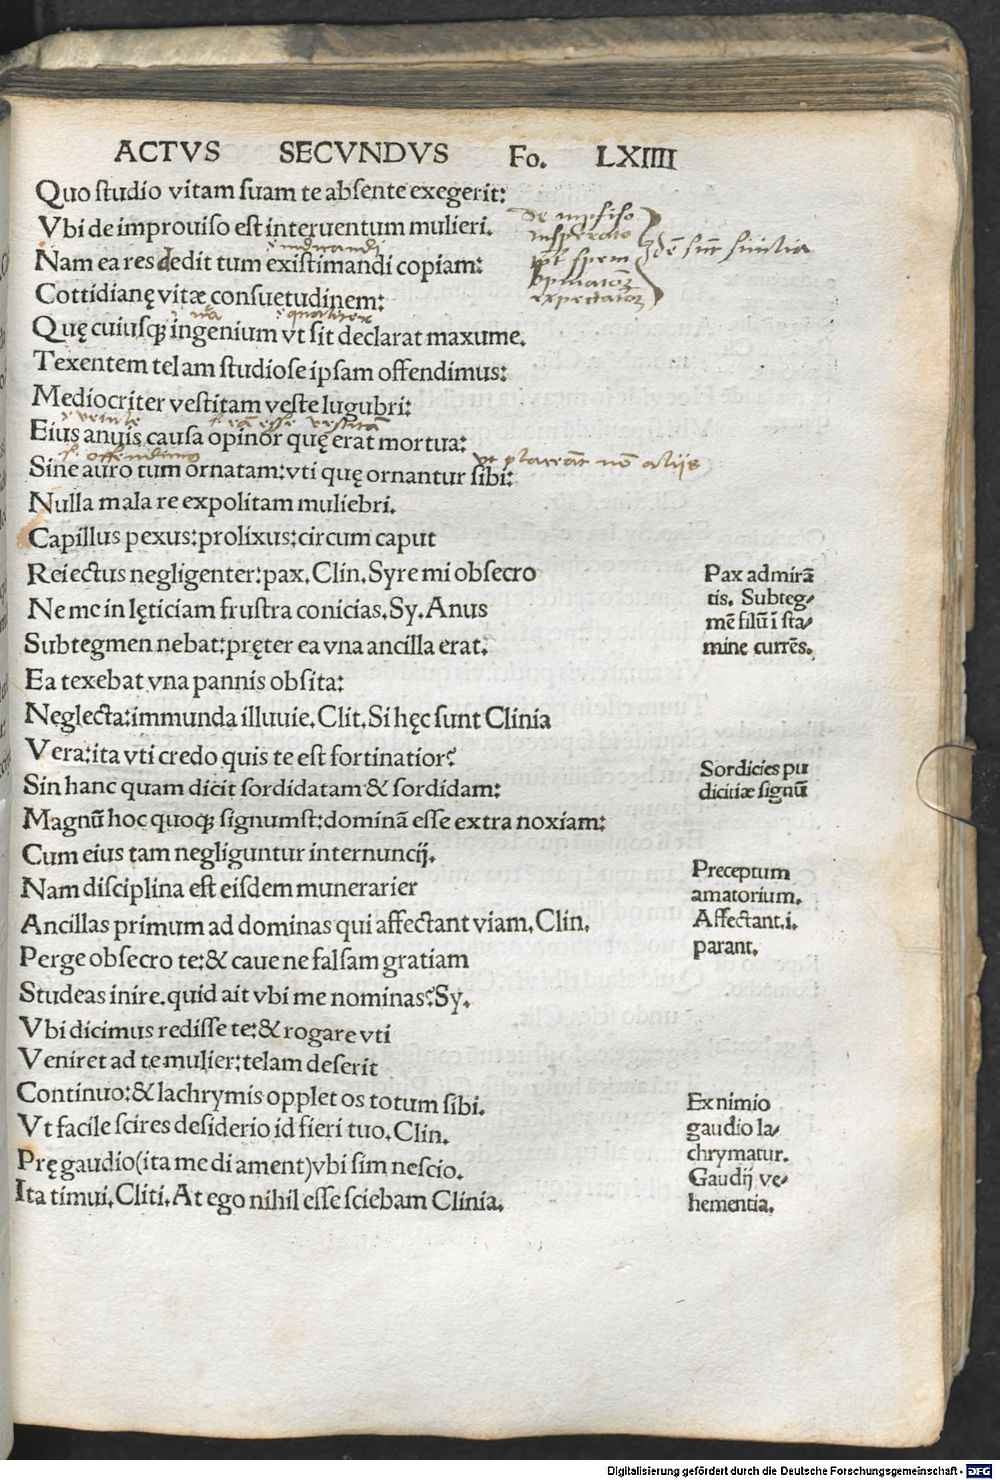 ACTVS SECVNDVS Fo. LXIIII
Quo studio vitam suam te absente exegerit:
Vbi de improuiso est interuentum mulieri.
Nam ea res dedit tum existimandi copiam:
Cottidianę vitæ consuetudinem:
Quę cuiusq̃ ingenium vt sit declarat maxume.
Texentem telam studiose ipsam offendimus:
Mediocriter vestitam veste lugubri:
Eius anuis causa opinor quę erat mortua:
Sine auro tum ornatam: vti quę ornantur sibi:
vt placeãt nõ aliis
Nulla mala re expolitam muliebri.
Capillus pexus: prolixus: circum caput
Reiectus negligenter: pax. Clin. Syre mi obsecro
Ne me in lęticiam frustra conicias. Sy. Anus
Subtegmen nebat: pręter ea vna ancilla erat.
Ea texebat vna pannis obsita:
Neglecta: immunda illuuie. Clit. Si hęc sunt Clinia
Vera: ita vti credo quis te est fortinatior?
Sin hanc quam dicit sordidatam & sordidam:
Magnũ hoc quoq̃ signumst: dominã esse extra noxiam:
Cum eius tam negliguntur internuncij.
Nam disciplina est eisdem munerarier
Ancillas primum ad dominas qui affectant viam. Clin.
Perge obsecro te: & caue ne falsam gratiam
Studeas inire. quid ait vbi me nominas? Sy.
Vbi dicimus redisse te: & rogare vti
Veniret ad te mulier: telam deserit
Continuo: & lachrymis opplet os totum sibi.
Vt facile scires desiderio id fieri tuo. Clin.
Prę gaudio (ita me di ament) vbi sim nescio.
Ita timui. Cliti. At ego nihil esse sciebam Clinia.
insperato
spem
Pax admirã
tis. Subteg-
mẽ filũ ĩ sta-
mine currẽs.
Sordicies pu
dicitiæ signũ
Preceptum
amatorium.
Affectant. i.
parant.
Ex nimio
gaudio la-
chrymatur.
Gaudij ve-
hementia.
Digitalisierung gefördert durch die Deutsche Forschungsgemeinschaft - DFG